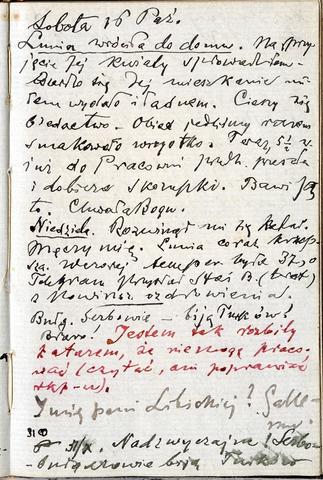 Sobota 16 Paź.
Lunia wróciła do domu. Na przy-
jęcie Jej kwiaty sprowadziłem.
się Jej mieszkanie mi-
łem wydało i ładnem. Cieszy się
biedactwo. Obiad jedliśmy razem
smakowało wszystko. Teraz, 5½ w.
już do Pracowni przesia
i dobiera skorupki. Bawi Ją
to. Chwała Bogu.
Niedziela. Rozwinął mi się katar.
Męczy mię. Lunia coraz
sza. Wczoraj temper. była 37,0
Telegram przysłał Staś B. (brat)
z Nowin
Bułg. Serbowie – biją Turków!
Brawo! Jestem tak rozbity
katarem, że nie mogę praco-
wać (czytać, ani poprawiać
rkp-u).
Imię pani Libickiej?
31
31/X. Nadzwyczajna! Serbo-
biją Turków